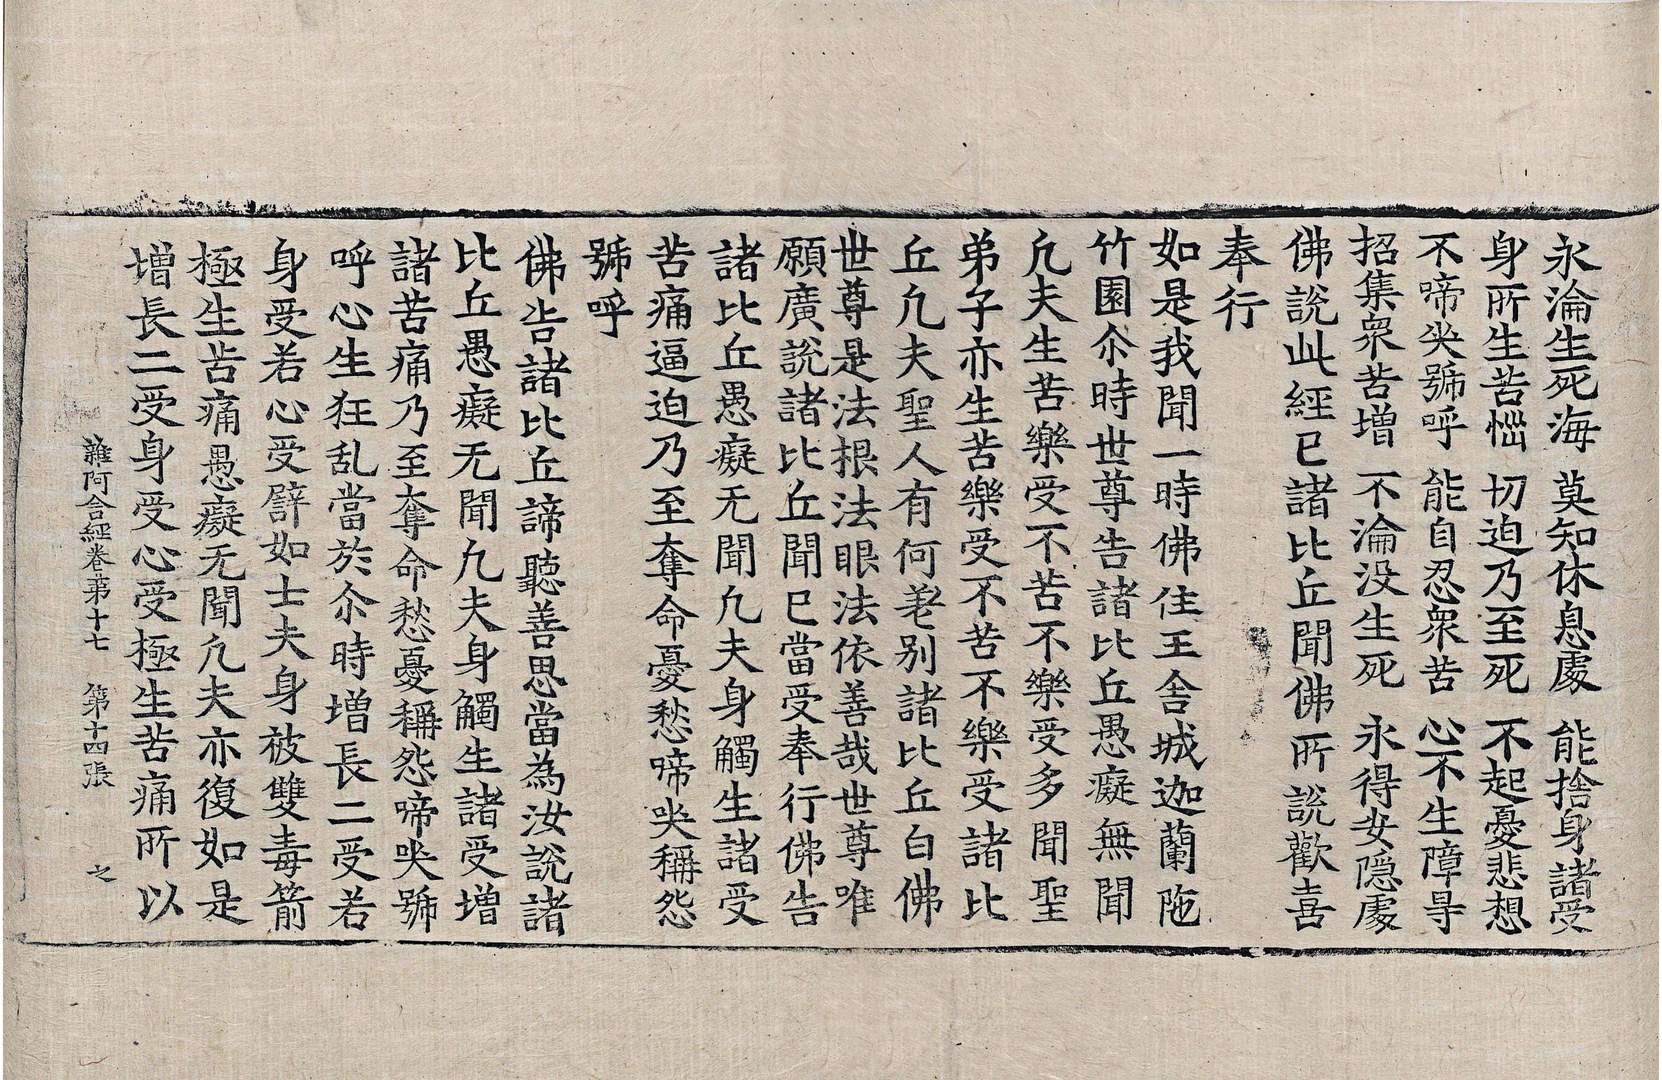 永淪生死海　莫知休息處　能捨身諸受
身所生苦惱　切迫乃至死　不起憂悲想
不啼哭號呼　能自忍衆苦　心不生障㝵
招集衆苦增　不淪没生死　永得安隱處
佛說此經已諸比丘聞佛所說歡喜
奉行
如是我聞一時佛住王舍城迦蘭陁
竹園尒時世尊告諸比丘愚癡無聞
凡夫生苦樂受不苦不樂受多聞聖
弟子亦生苦樂受不苦不樂受諸比
丘凡夫聖人有何差別諸比丘白佛
世尊是法根法眼法依善哉世尊唯
願廣說諸比丘聞已當受奉行佛告
諸比丘愚癡无聞凡夫身觸生諸受
苦痛逼迫乃至奪命憂愁啼哭稱怨
號呼
佛告諸比丘諦聽善思當為汝說諸
比丘愚癡无聞凡夫身觸生諸受增
諸苦痛乃至奪命愁憂稱怨啼哭號
呼心生狂乱當於尒時增長二受若
身受若心受譬如士夫身被雙毒箭
極生苦痛愚癡无聞凡夫亦復如是
增長二受身受心受極生苦痛所以
雜阿含經卷第十七　第十四張　之